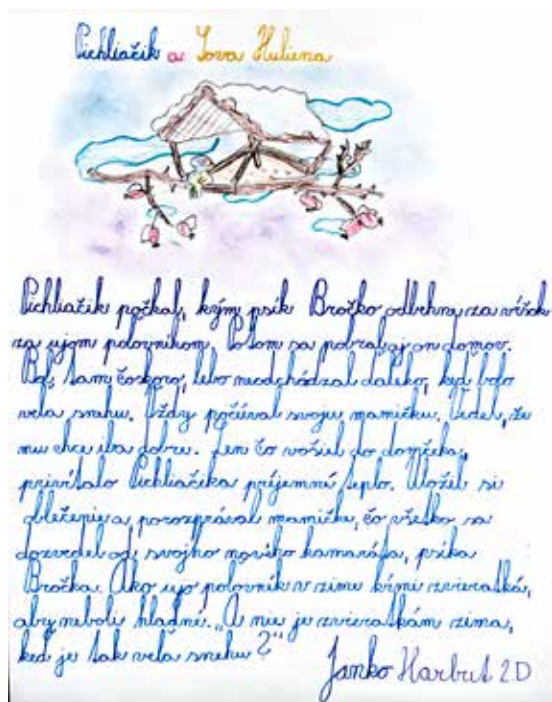 Pichliačik a Sova Huluna
Pichliačik počkal, kým psík Bročko odbehne za vŕšok
za ujom poľovníkom. Potom sa pobral aj on domov.
Bol tam čoskoro, lebo neodchádzal ďaleko, keď bolo
veľa snehu. Vždy počúval svoju mamičku. Vedel, že
mu chce iba dobre. Len čo vošiel do domčeka,
privítalo Pichliačika príjemné teplo. Uložil si
oblečenie a porozprával mamičke, čo všetko sa
dozvedel od svojho nového kamaráta, psíka
Bročka. Ako ujo poľovník v zime kŕmi zvieratká,
aby neboli hladné. „A nie je zvieratkám zima,
keď je tak veľa snehu?“
Janko Harbut 2.D